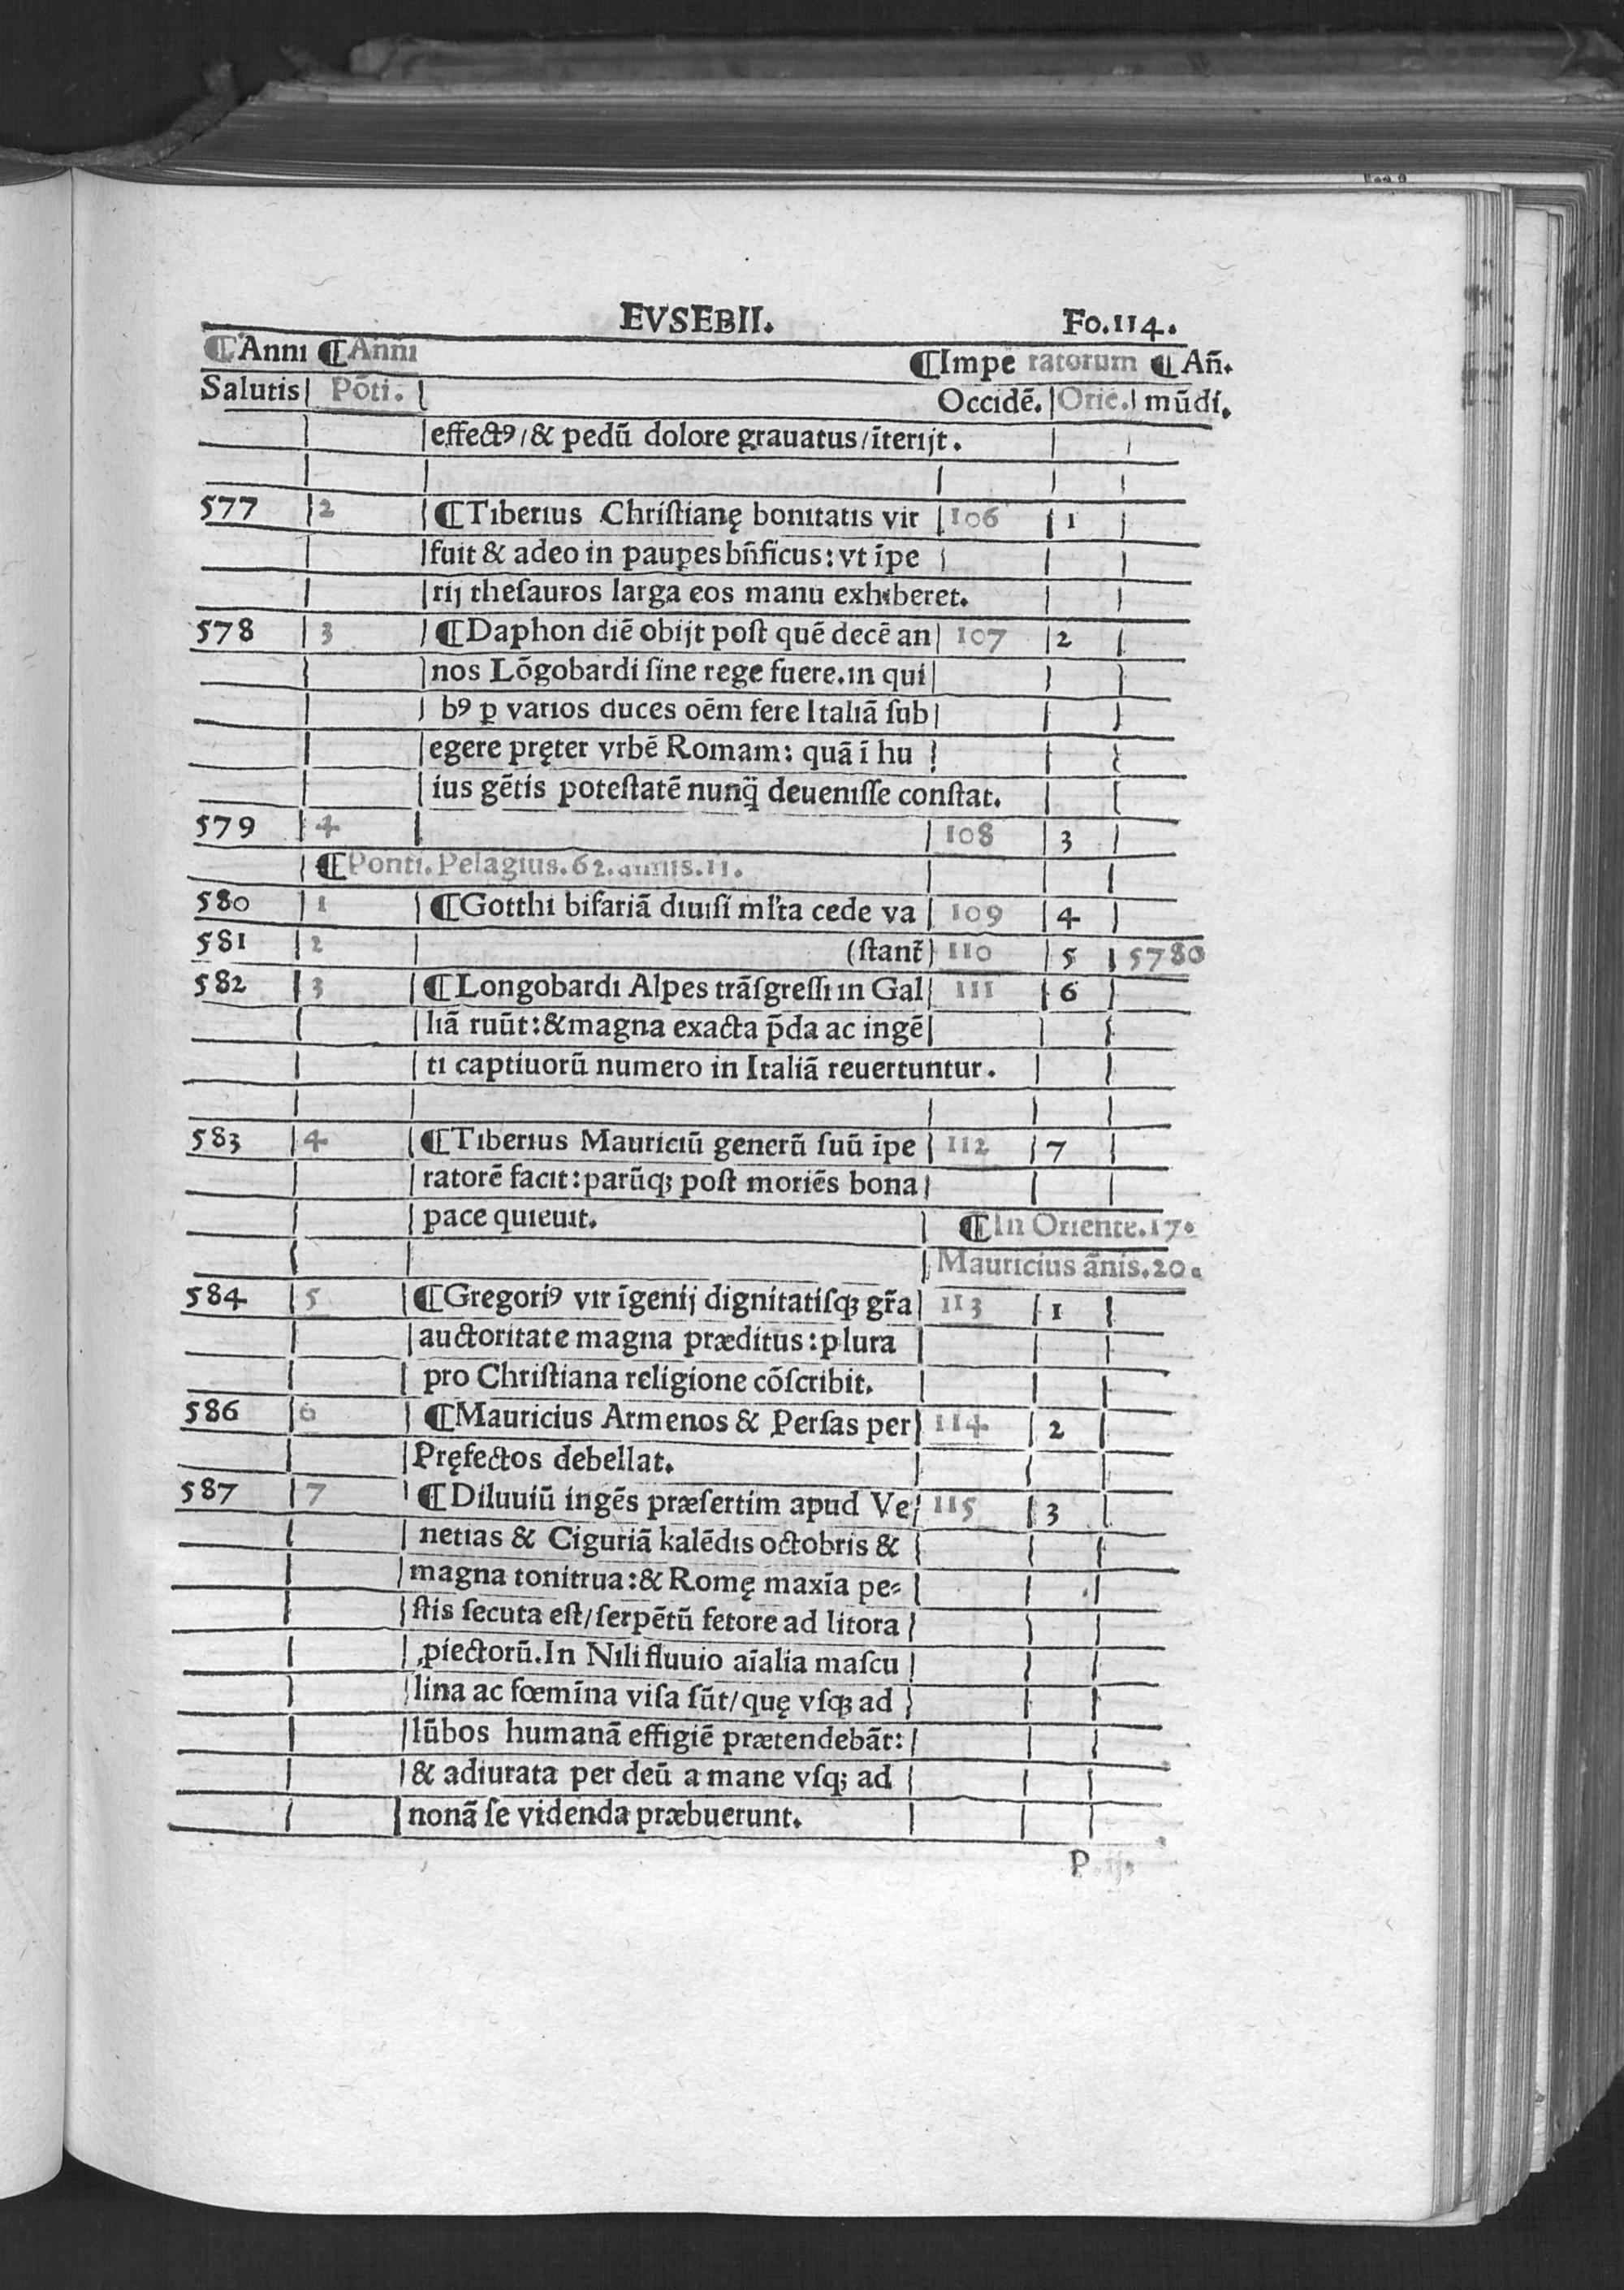 EVSEBII. Fo.114.
¶Anni ¶Anni ¶Impe ratorum ¶Añ.
Salutis Põti. Occidẽ. Oriẽ. mũdi.
effectꝰ/& pedũ dolore grauatus/ĩterijt.
577 2 ¶Tiberius Chriſtianę bonitatis vir 106 1
fuit & adeo in pauꝑes bñficus: vt ĩpe
rij theſauros larga eos manu exhiberet.
578 3 ¶Daphon diẽ obijt poſt quẽ decẽ an 107 2
nos Lõgobardi ſine rege fuere. in qui
bꝰ ꝑ varios duces oẽm fere Italiã ſub
egere pręter vrbẽ Romam: quã ĩ hu
ius gẽtis poteſtatẽ nunq̃ deueniſſe conſtat.
579 4 108 3
¶Ponti. Pelagius. 62. annis. 11.
580 1 ¶Gotthi bifariã diuiſi ml'ta cede va 109 4
581 2 (ſtanť) 110 5 5780
582 3 ¶Longobardi Alpes trãſgreſſi in Gal 111 6
liã ruũt: & magna exacta p̃da ac ingẽ
ti captiuorũ numero in Italiã reuertuntur.
583 4 ¶Tiberius Mauriciũ generũ ſuũ ĩpe 112 7
ratorẽ facit: parũqꝫ poſt moriẽs bona
pace quieuit. ¶In Oriente. 17.
Mauricius ãnis. 20.
584 5 ¶Gregoriꝰ vir ĩgenij dignitatiſqꝫ gr̃a 113 1
auctoritate magna præditus: plura
pro Chriſtiana religione cõſcribit.
586 6 ¶Mauricius Armenos & Perſas per 114 2
Pręfectos debellat.
587 7 ¶Diluuiũ ingẽs præſertim apud Ve 115 3
netias & Ciguriã kalẽdis octobris &
magna tonitrua: & Romę maxĩa pe⸗
ſtis ſecuta eſt/ſerpẽtũ fetore ad litora
ꝓiectorũ. In Nili fluuio aĩalia maſcu
lina ac fœmĩna viſa ſũt/quę vſqꝫ ad
lũbos humanã effigiẽ prætendebãt:
& adiurata per deũ a mane vſqꝫ ad
nonã ſe videnda præbuerunt.
P.ij.